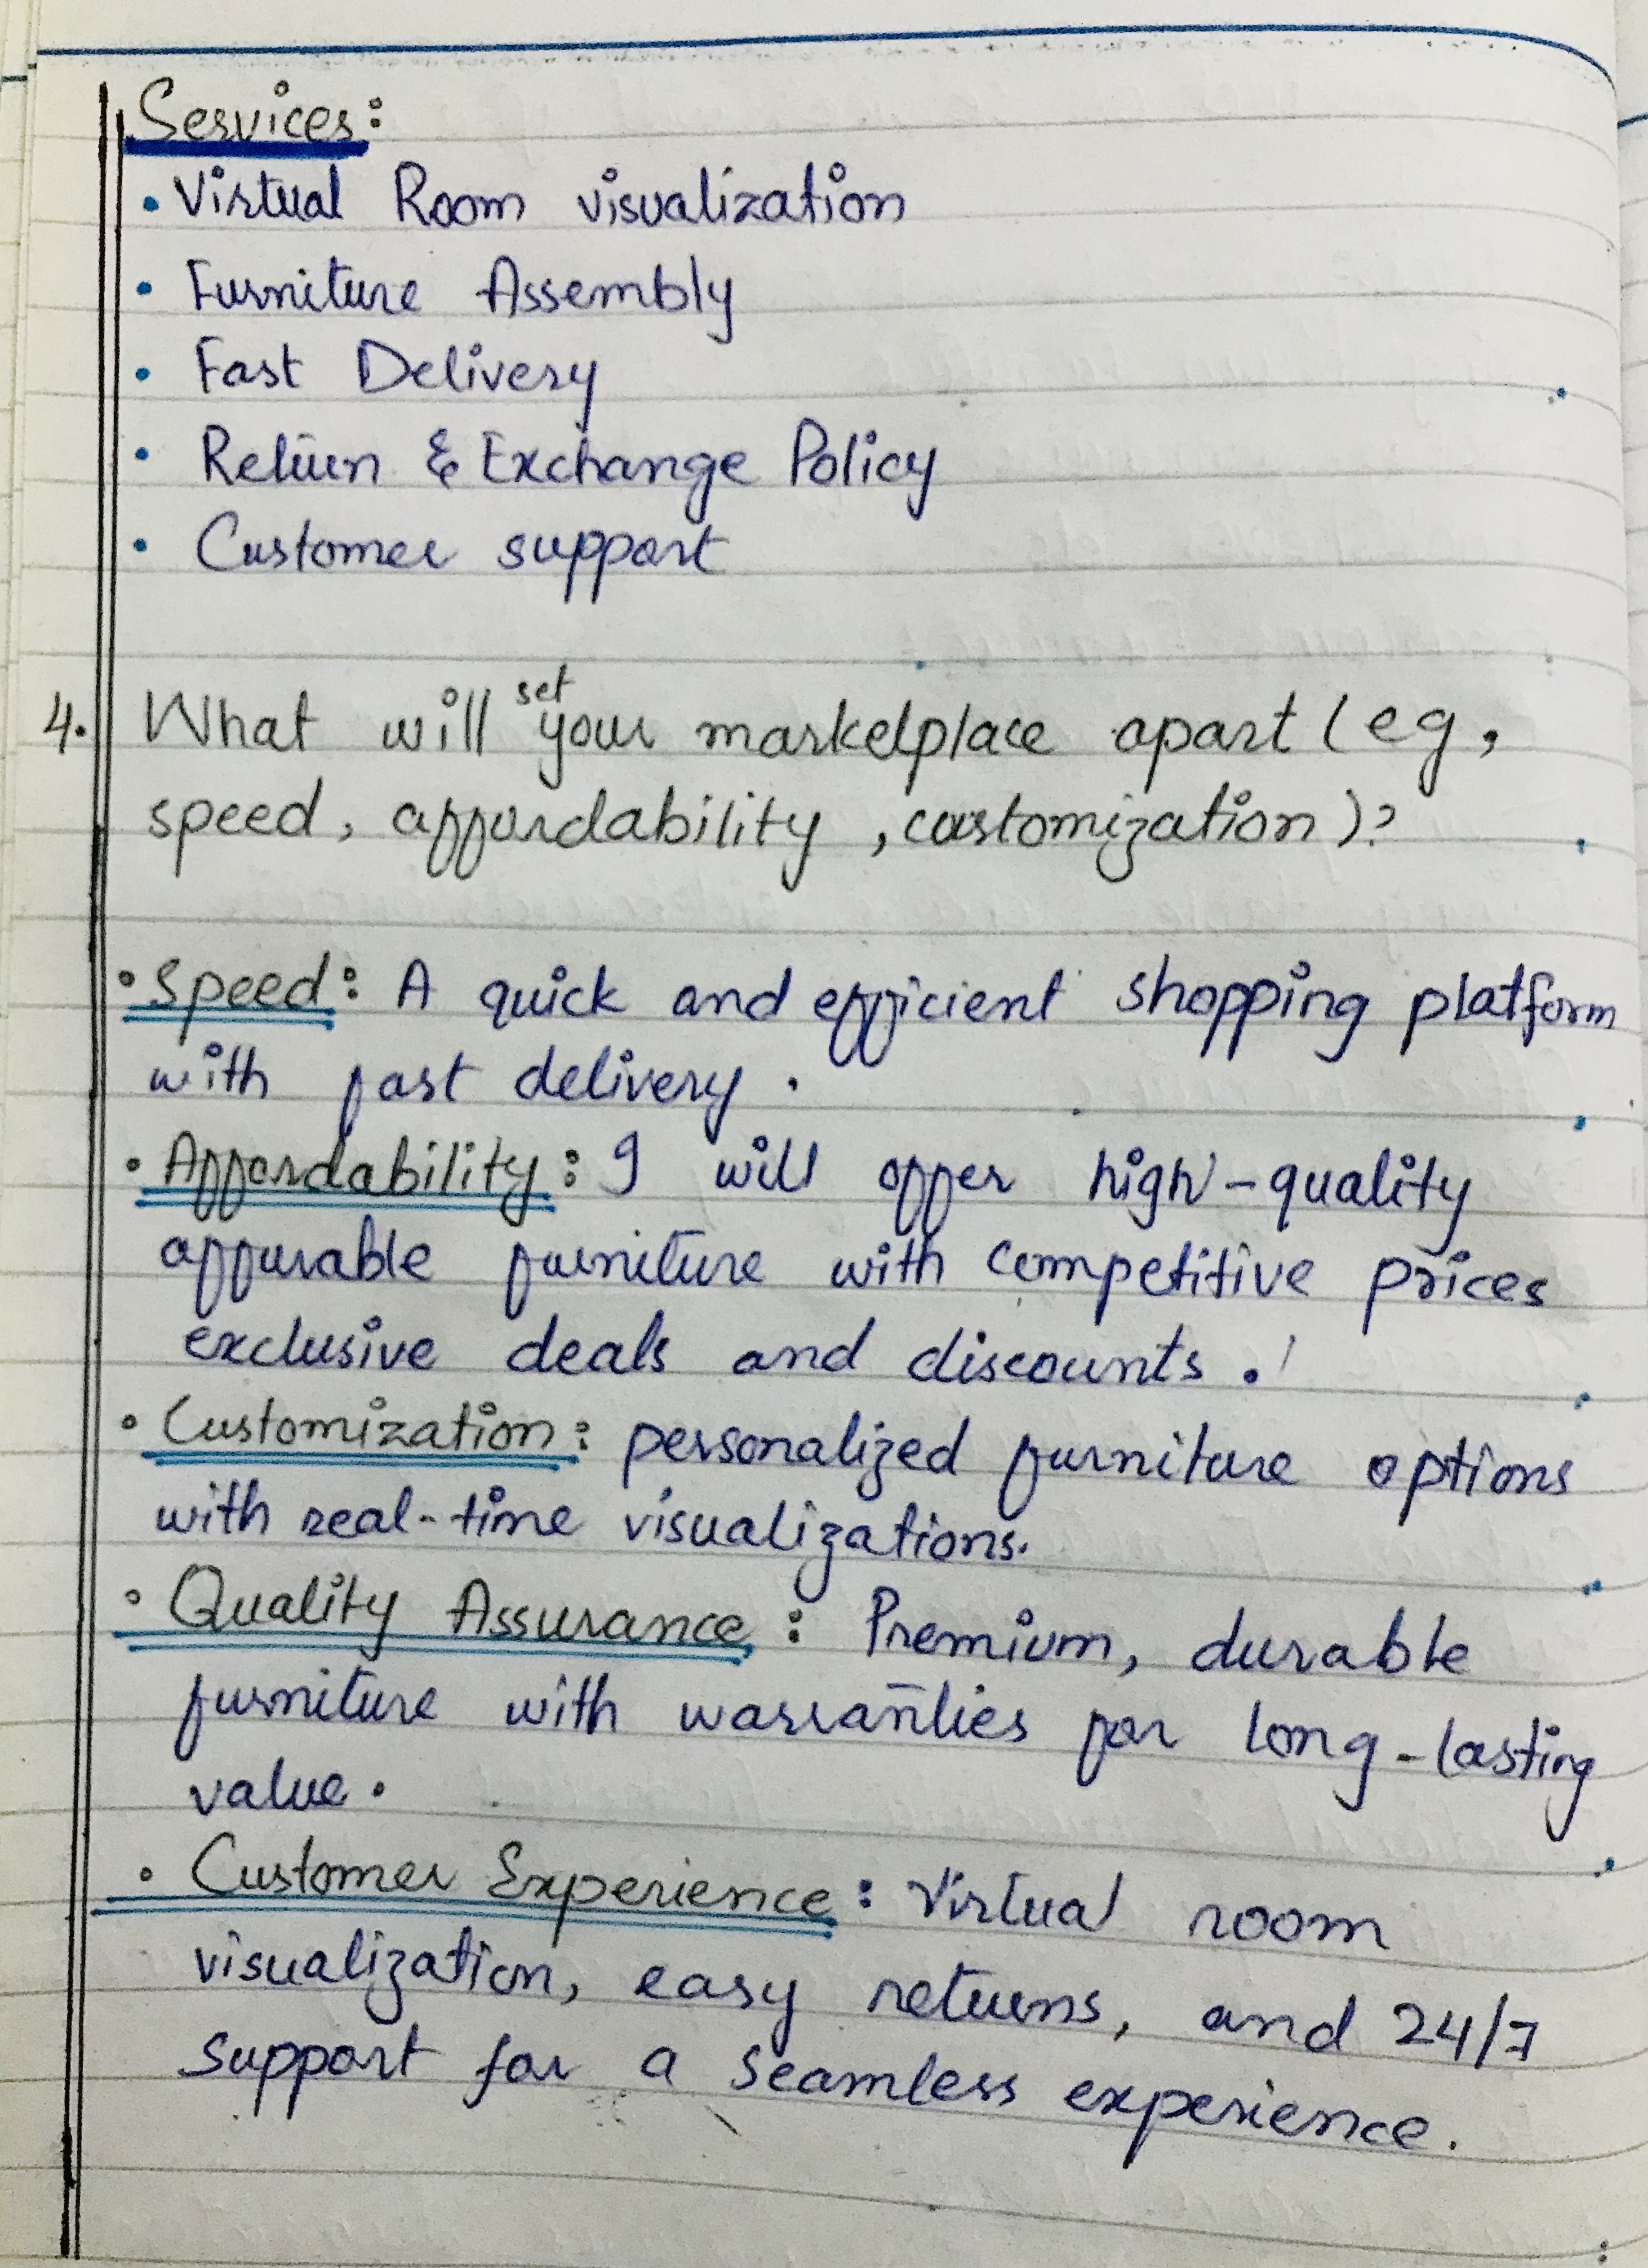 Services:
• Virtual Room visualization
• Furniture Assembly
• Fast Delivery
• Return & Exchange Policy
• Customer support
4. What will set your marketplace apart (eg,
speed, affordability, customization)?
• Speed: A quick and efficient shopping platform
with fast delivery.
• Affordability: I will offer high-quality
affurable furniture with competitive prices
exclusive deals and discounts.
• Customization: personalized furniture options
with real-time visualizations.
• Quality Assurance: Premium, durable
furniture with warranties for long-lasting
value.
• Customer Experience: Virtual room
visualization, easy returns, and 24/7
support for a seamless experience.